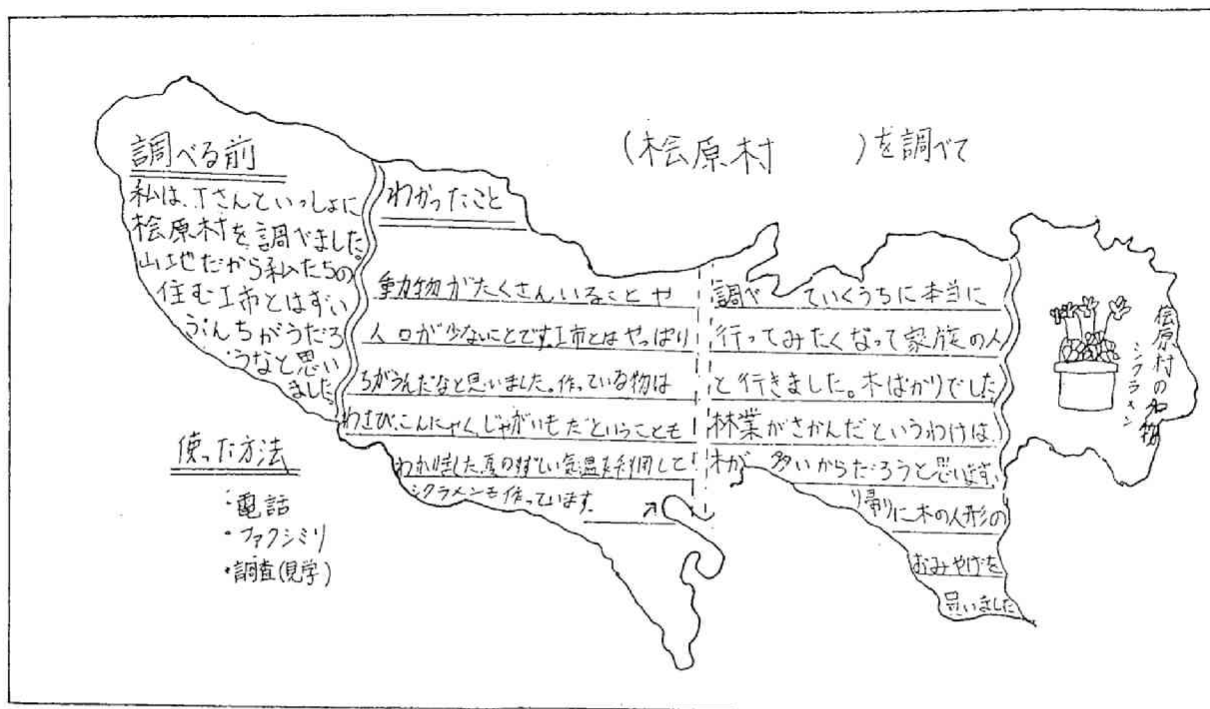 (桧原村　　)を調べて
調べる前
私は、Tさんといっしょに
桧原村を調べました。
山地だから私たちの
住むI市とはずい
ぶんちがうだろ
うなと思い
ました。
使った方法
・電話
・ファクシミリ
・調査(見学)
わかったこと
動物がたくさんいることや
人口が少ないことです。I市とはやっぱり
ちがうんだなと思いました。作っている物は
わさび、こんにゃく、じゃがいもだということも
わかりました。夏のすずしい気温を利用して
シクラメンも作っています。
調べていくうちに本当に
行ってみたくなって家族の人
と行きました。木ばかりでした
林業がさかんだというわけは、
木が多いからだろうと思います。
り帰りに木の人形の
おみやげを
買いました
桧原村の名物
シクラメン